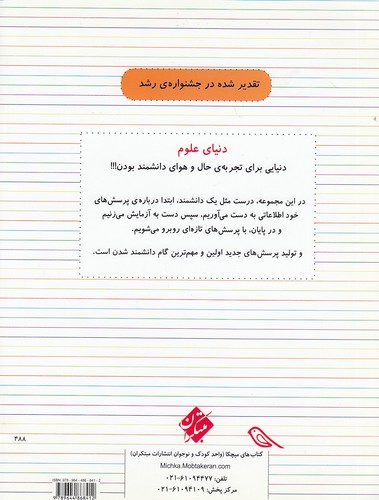 تقدیر شده در جشنواره‌ی رشد
دنیای علوم
دنیایی برای تجربه‌ی حال و هوای دانشمند بودن!!!
در این مجموعه، درست مثل یک دانشمند، ابتدا درباره‌ی پرسش‌های
خود اطلاعاتی به دست می‌آوریم، سپس دست به آزمایش می‌زنیم
و در پایان، با پرسش‌های تازه‌ای روبرو می‌شویم.
و تولید پرسش‌های جدید اولین و مهم‌ترین گام دانشمند شدن است.
۴۸۸
مبتکران
کتاب‌های میچکا (واحد کودک و نوجوان انتشارات مبتکران)
Michka.Mobtakeran.com
تلفن: ۶۱۰۹۴۴۷۷-۰۲۱
مرکز پخش: ۶۱۰۹۴۱۰۹-۰۲۱
9789644868412